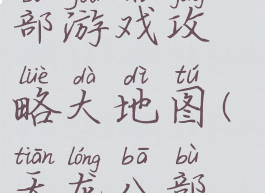 部游戏攻
lüè dà dì tú
略大地图(
tiān lóng bā bù
天龙八部